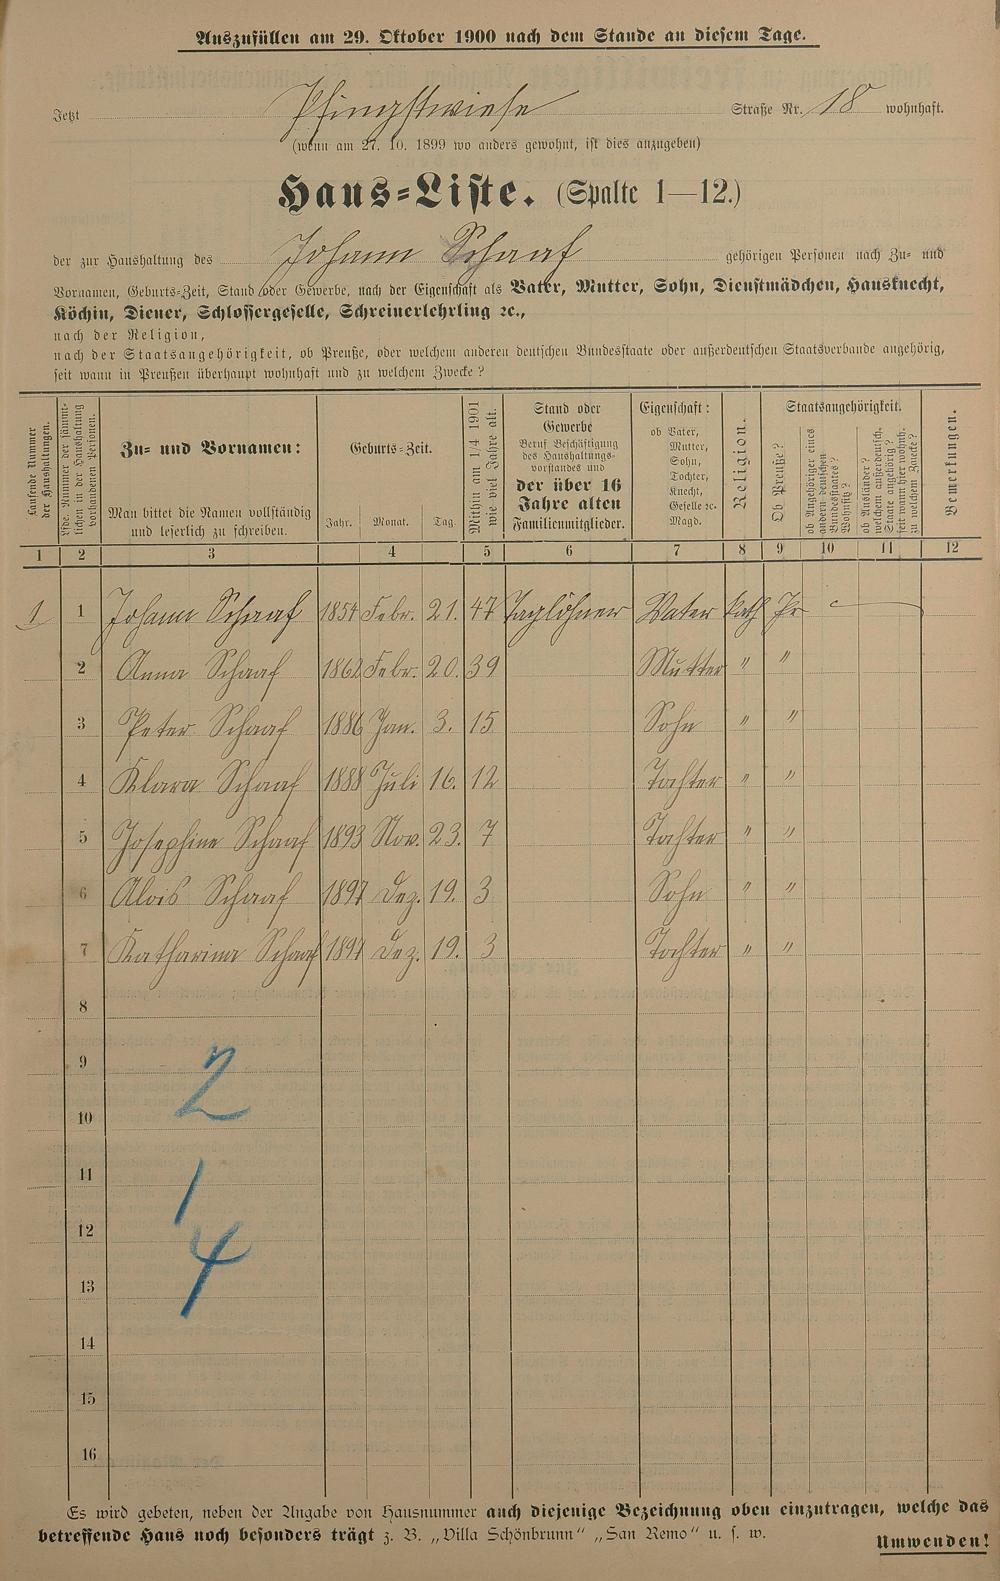 Auszufüllen am 29. Oktober 1900 nach dem Stande an diesem Tage.
Jetzt Pfingstwiese Straße Nr. 18 wohnhaft.
(wenn am 27. 10. 1899 wo anders gewohnt, ist dies anzugeben)
Haus-Liste. (Spalte 1—12.)
der zur Haushaltung des Johann Schaaf gehörigen Personen nach Zu- und
Vornamen, Geburts-Zeit, Stand oder Gewerbe, nach der Eigenschaft als Vater, Mutter, Sohn, Dienstmädchen, Hausknecht,
Köchin, Diener, Schlossergeselle, Schreinerlehrling ꝛc.,
nach der Religion,
nach der Staatsangehörigkeit, ob Preuße, oder welchem anderen deutschen Bundesstaate oder außerdeutschen Staatsverbande angehörig,
seit wann in Preußen überhaupt wohnhaft und zu welchem Zwecke?
Laufende Nummer
der Haushaltungen.
Lfde. Nummer der sämmt-
lichen in der Haushaltung
vorhandenen Personen.
Zu- und Vornamen:
Man bittet die Namen vollständig
und leserlich zu schreiben.
Geburts-Zeit.
Jahr. Monat. Tag.
Mithin am 1/4 1901
wie viel Jahre alt.
Stand oder
Gewerbe
Beruf Beschäftigung
des Haushaltungs-
vorstandes und
der über 16
Jahre alten
Familienmitglieder.
Eigenschaft:
ob Vater,
Mutter,
Sohn,
Tochter,
Knecht,
Geselle ꝛc.
Magd.
Religion.
Staatsangehörigkeit.
Ob Preuße?
ob Angehöriger eines
andern deutschen
Bundesstaates?
Wohnsitz?
ob Ausländer?
welchem außerdeutsch.
Staate angehörig?
seit wann hier wohnh.
zu welchem Zwecke?
Bemerkungen.
1 2 3 4 5 6 7 8 9 10 11 12
1 1 Johann Schaaf 1854 Febr. 21. 47 Taglöhner Vater kath Pr
2 Anna Schaaf 1862 Febr. 20. 39 Mutter " "
3 Peter Schaaf 1886 Jan. 3. 15 Sohn " "
4 Klara Schaaf 1888 Juli 16. 12 Tochter " "
5 Josephine Schaaf 1893 Nov. 23. 7 Tochter " "
6 Alois Schaaf 1897 Dez. 19. 3 Sohn " "
7 Katharina Schaaf 1897 Dez. 19. 3 Tochter " "
8
9
2
10
11
1
12
4
13
14
15
16
Es wird gebeten, neben der Angabe von Hausnummer auch diejenige Bezeichnung oben einzutragen, welche das
betreffende Haus noch besonders trägt z. B. „Villa Schönbrunn" „San Remo" u. s. w.
Umwenden!